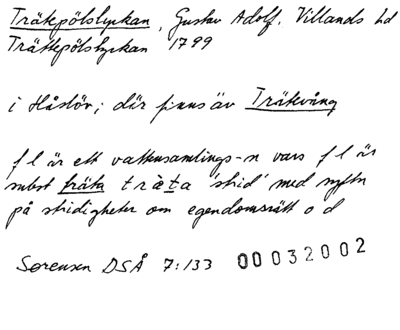 Träkepölslyckan, Gustav Adolf, Villands hd
Träkkepölslyckan 1799
i Håslöv; där finns äv Träkvång
f l är ett vattensamlings-n vars f l är
subst träta träta 'strid' med syftn
på stridigheter om egendomsrätt o d
Sørensen DSÅ 7:133 00032002